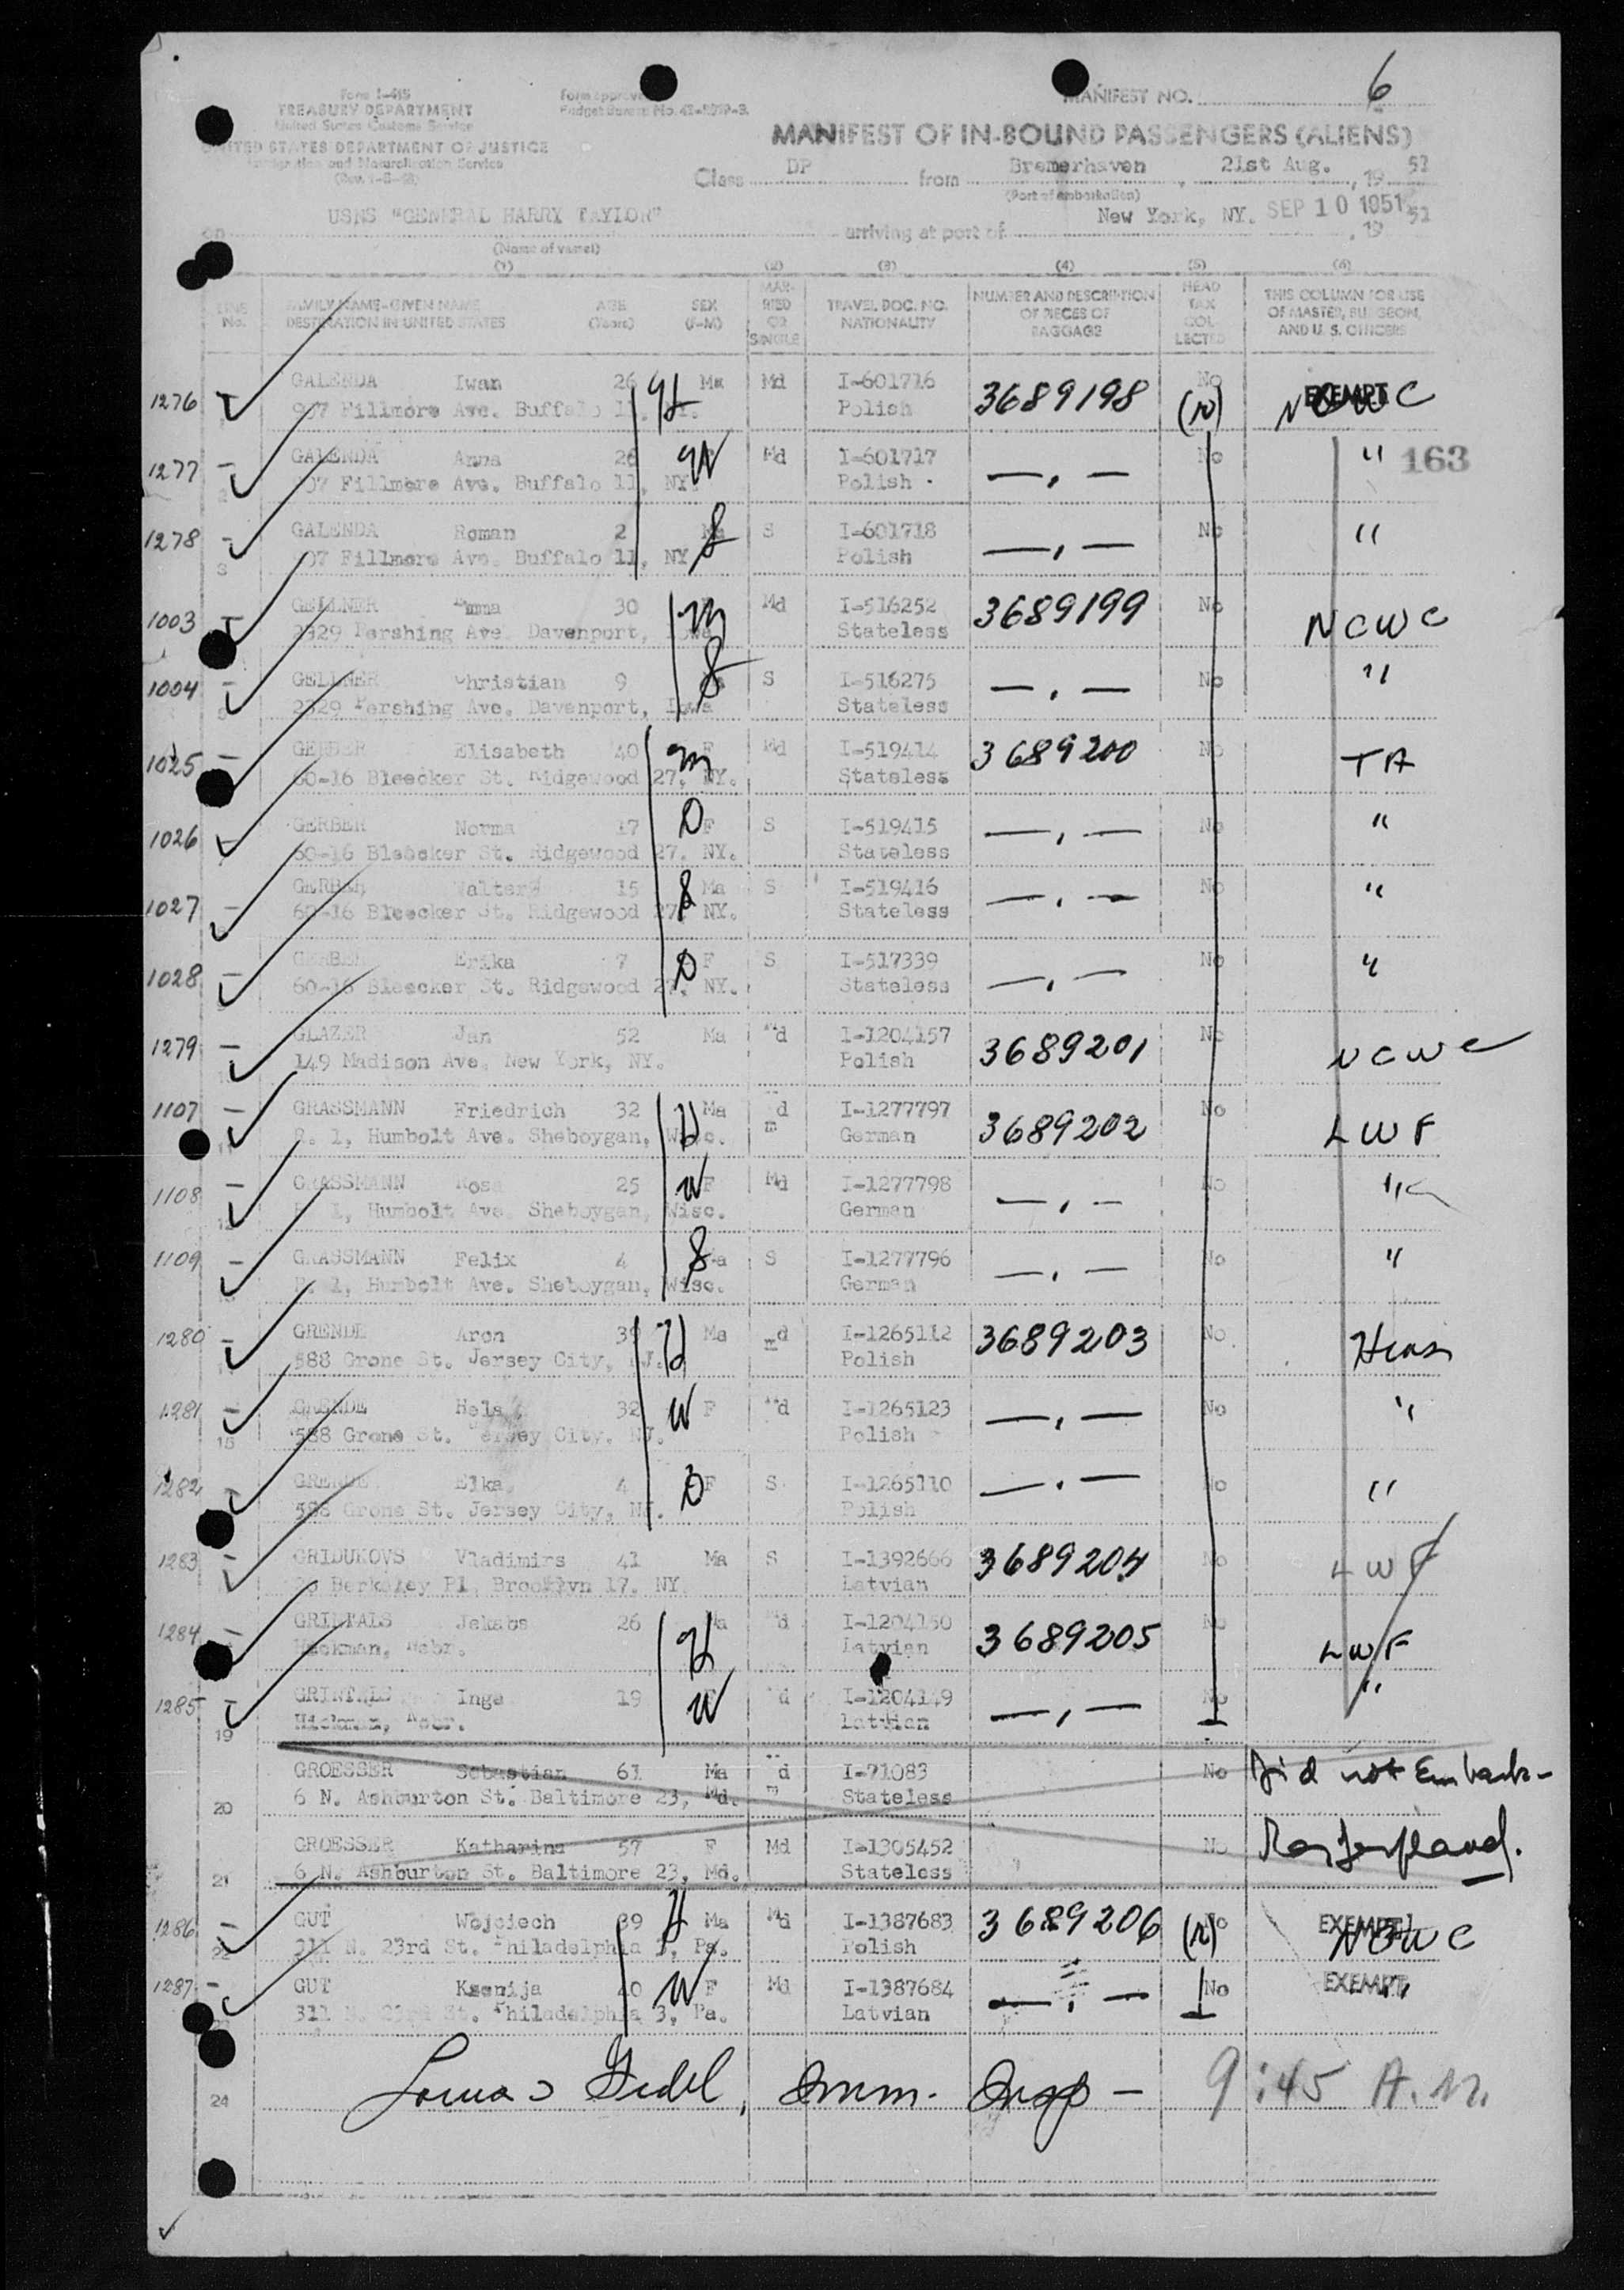 6
Form I-415
TREASURY DEPARTMENT
United States Customs Service
UNITED STATES DEPARTMENT OF JUSTICE
Immigration and Naturalization Service
Form approved
Budget Bureau No.
MANIFEST NO.
MANIFEST OF IN-BOUND PASSENGERS (ALIENS)
Class DP from Bremerhaven, 21st Aug., 19 51
(Port of embarkation)
on USNS "GENERAL HARRY TAYLOR" arriving at port of New York, NY. SEP 10 1951, 19 51
(Name of vessel)
(1) (2) (3) (4) (5) (6)
LINE No. FAMILY NAME-GIVEN NAME DESTINATION IN UNITED STATES AGE (Years) SEX (F-M) MARRIED OR SINGLE TRAVEL DOC. NO. NATIONALITY NUMBER AND DESCRIPTION OF PIECES OF BAGGAGE HEAD TAX COLLECTED THIS COLUMN FOR USE OF MASTER, SURGEON, AND U. S. OFFICERS
1276 GALENDA Iwan 26 Ma Md I-601716 3689198 No EXEMPT NCWC
907 Fillmore Ave. Buffalo 11, NY. Polish
1277 GALENDA Anna 26 W Md I-601717 — . — No " 163
907 Fillmore Ave. Buffalo 11, NY. Polish
1278 GALENDA Roman 2 Ma S I-601718 — . — No "
907 Fillmore Ave. Buffalo 11, NY Polish
1003 GELLNER Emma 30 m Md I-516252 3689199 No NCWC
2329 Pershing Ave. Davenport, Iowa Stateless
1004 GELLNER Christian 9 S I-516275 — . — No "
2329 Pershing Ave. Davenport, Iowa Stateless
1025 GERBER Elisabeth 40 m F Md I-519414 3689200 No TA
60-16 Bleecker St. Ridgewood 27, NY. Stateless
1026 GERBER Norma 17 D F S I-519415 — . — No "
60-16 Bleecker St. Ridgewood 27. NY. Stateless
1027 GERBER Walter 15 Ma S I-519416 — . — No "
60-16 Bleecker St. Ridgewood 27. NY. Stateless
1028 GERBER Erika 7 D F S I-517339 — . — No "
60-16 Bleecker St. Ridgewood 27, NY. Stateless
1279 GLAZER Jan 52 Ma Md I-1204157 3689201 No NCWC
149 Madison Ave. New York, NY. Polish
1107 GRASSMANN Friedrich 32 H Ma d I-1277797 3689202 No LWF
R. 1, Humbolt Ave. Sheboygan, Wisc. m German
1108 GRASSMANN Rosa 25 W F Md I-1277798 — . — No "
R. 1, Humbolt Ave. Sheboygan, Wisc. German
1109 GRASSMANN Felix 4 S Ma S I-1277796 — . — No "
R. 1, Humbolt Ave. Sheboygan, Wisc. German
1280 GRENDE Aron 39 H Ma md I-1265112 3689203 No Hias
588 Grone St. Jersey City, NJ. Polish
1281 GRENDE Hela 32 W F Md I-1265123 — . — No "
15 588 Grone St. Jersey City, NJ. Polish
1282 GRENDE Elka 4 D F S I-1265110 — . — No "
588 Grone St. Jersey City, NJ. Polish
1283 GRIDUKOVS Vladimirs 41 Ma S I-1392666 3689204 No LWF
Berkeley Pl. Brooklyn 17. NY. Latvian
1284 GRINTALS Jekabs 26 H Ma Md I-1204150 3689205 No LWF
Hickman, Nebr. Latvian
1285 GRINTALS Inga 19 W F Md I-1204149 — . — No "
19 Hickman, Nebr. Latvian
GROESSER Sebastian 61 Ma d I-71083 No Did not Embark-
20 6 N. Ashburton St. Baltimore 23, Md. m Stateless
GROESSER Katharina 57 F Md I-1305452 No
21 6 N. Ashburton St. Baltimore 23, Md. Stateless
1286 GUT Wojciech 39 H Ma Md I-1387683 3689206 No EXEMPT NCWC
22 311 N. 23rd St. Philadelphia 3, Pa. Polish
1287 GUT Ksenija 40 W F Md I-1387684 — . — No EXEMPT "
311 N. 23rd St. Philadelphia 3, Pa. Latvian
24 Imm. Insp — 9:45 A.M.